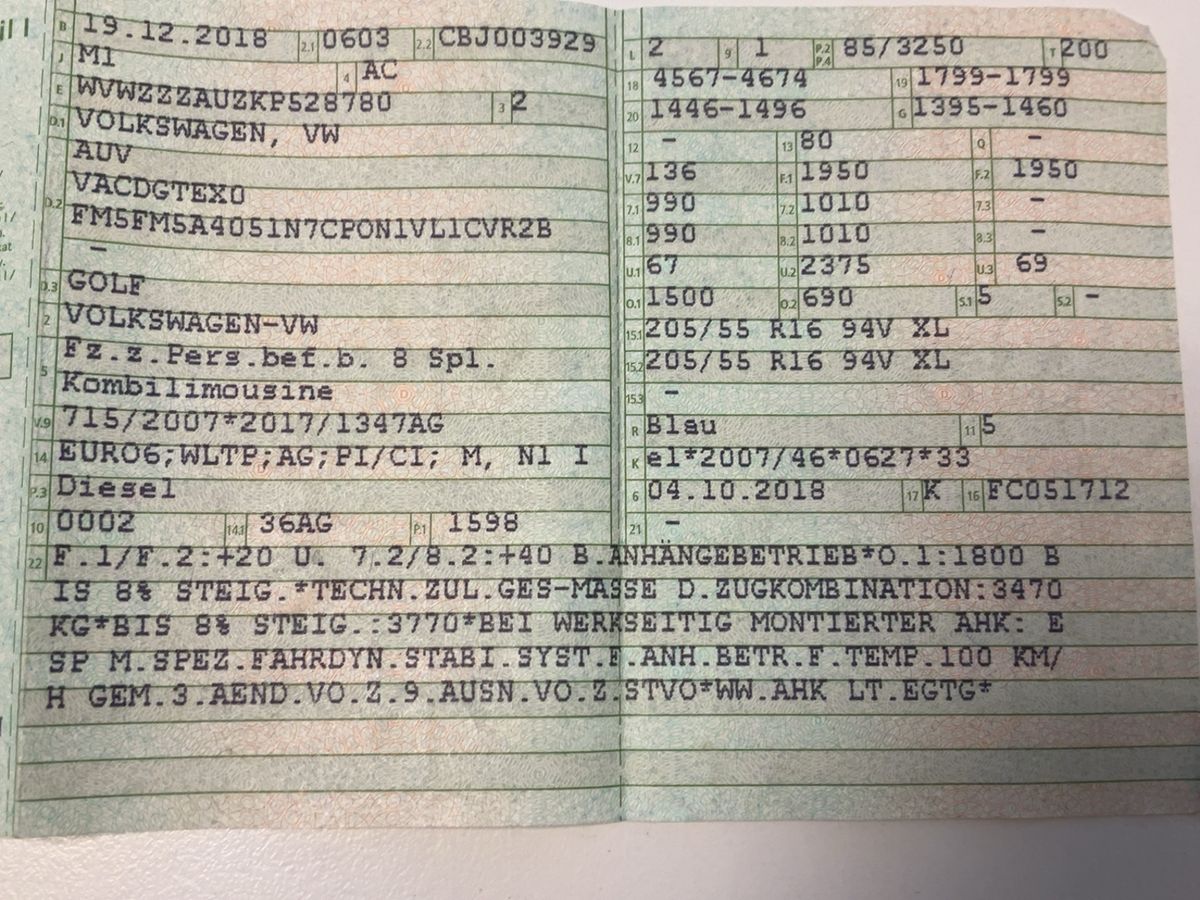 B 19.12.2018 2.1 0603 2.2 CBJ003929
J M1 4 AC
E WVWZZZAUZKP528780 3 2
D.1 VOLKSWAGEN, VW
AUV
D.2 VACDGTEX0
FM5FM5A4051N7CPON1VL1CVR2B
-
D.3 GOLF
2 VOLKSWAGEN-VW
5 Fz.z.Pers.bef.b. 8 Spl.
Kombilimousine
V.9 715/2007*2017/1347AG
14 EURO6;WLTP;AG;PI/CI; M, N1 I
P.3 Diesel
10 0002 14.1 36AG P.1 1598
L 2 9 1 P.2 P.4 85/3250 T 200
18 4567-4674 19 1799-1799
20 1446-1496 G 1395-1460
12 - 13 80 Q -
V.7 136 F.1 1950 F.2 1950
7.1 990 7.2 1010 7.3 -
8.1 990 8.2 1010 8.3 -
U.1 67 U.2 2375 U.3 69
O.1 1500 O.2 690 S.1 5 S.2 -
15.1 205/55 R16 94V XL
15.2 205/55 R16 94V XL
15.3 -
R Blau 11 5
K e1*2007/46*0627*33
6 04.10.2018 17 K 16 FC051712
21 -
22 F.1/F.2:+20 U. 7.2/8.2:+40 B.ANHÄNGEBETRIEB*O.1:1800 B
IS 8% STEIG.*TECHN.ZUL.GES-MASSE D.ZUGKOMBINATION:3470
KG*BIS 8% STEIG.:3770*BEI WERKSEITIG MONTIERTER AHK: E
SP M.SPEZ.FAHRDYN.STABI.SYST.F.ANH.BETR.F.TEMP.100 KM/
H GEM.3.AEND.VO.Z.9.AUSN.VO.Z.STVO*WW.AHK LT.EGTG*